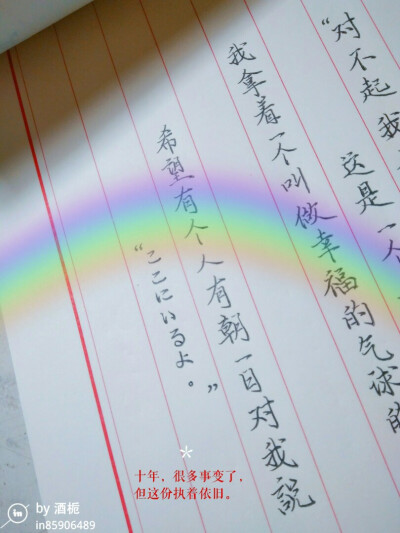 “对不起我
这是一个
我拿着一个叫做幸福的气球的
希望有个人有朝一日对我說
“ここにいるよ。”
十年，很多事变了，
但这份执着依旧。
in by 酒栀
in85906489